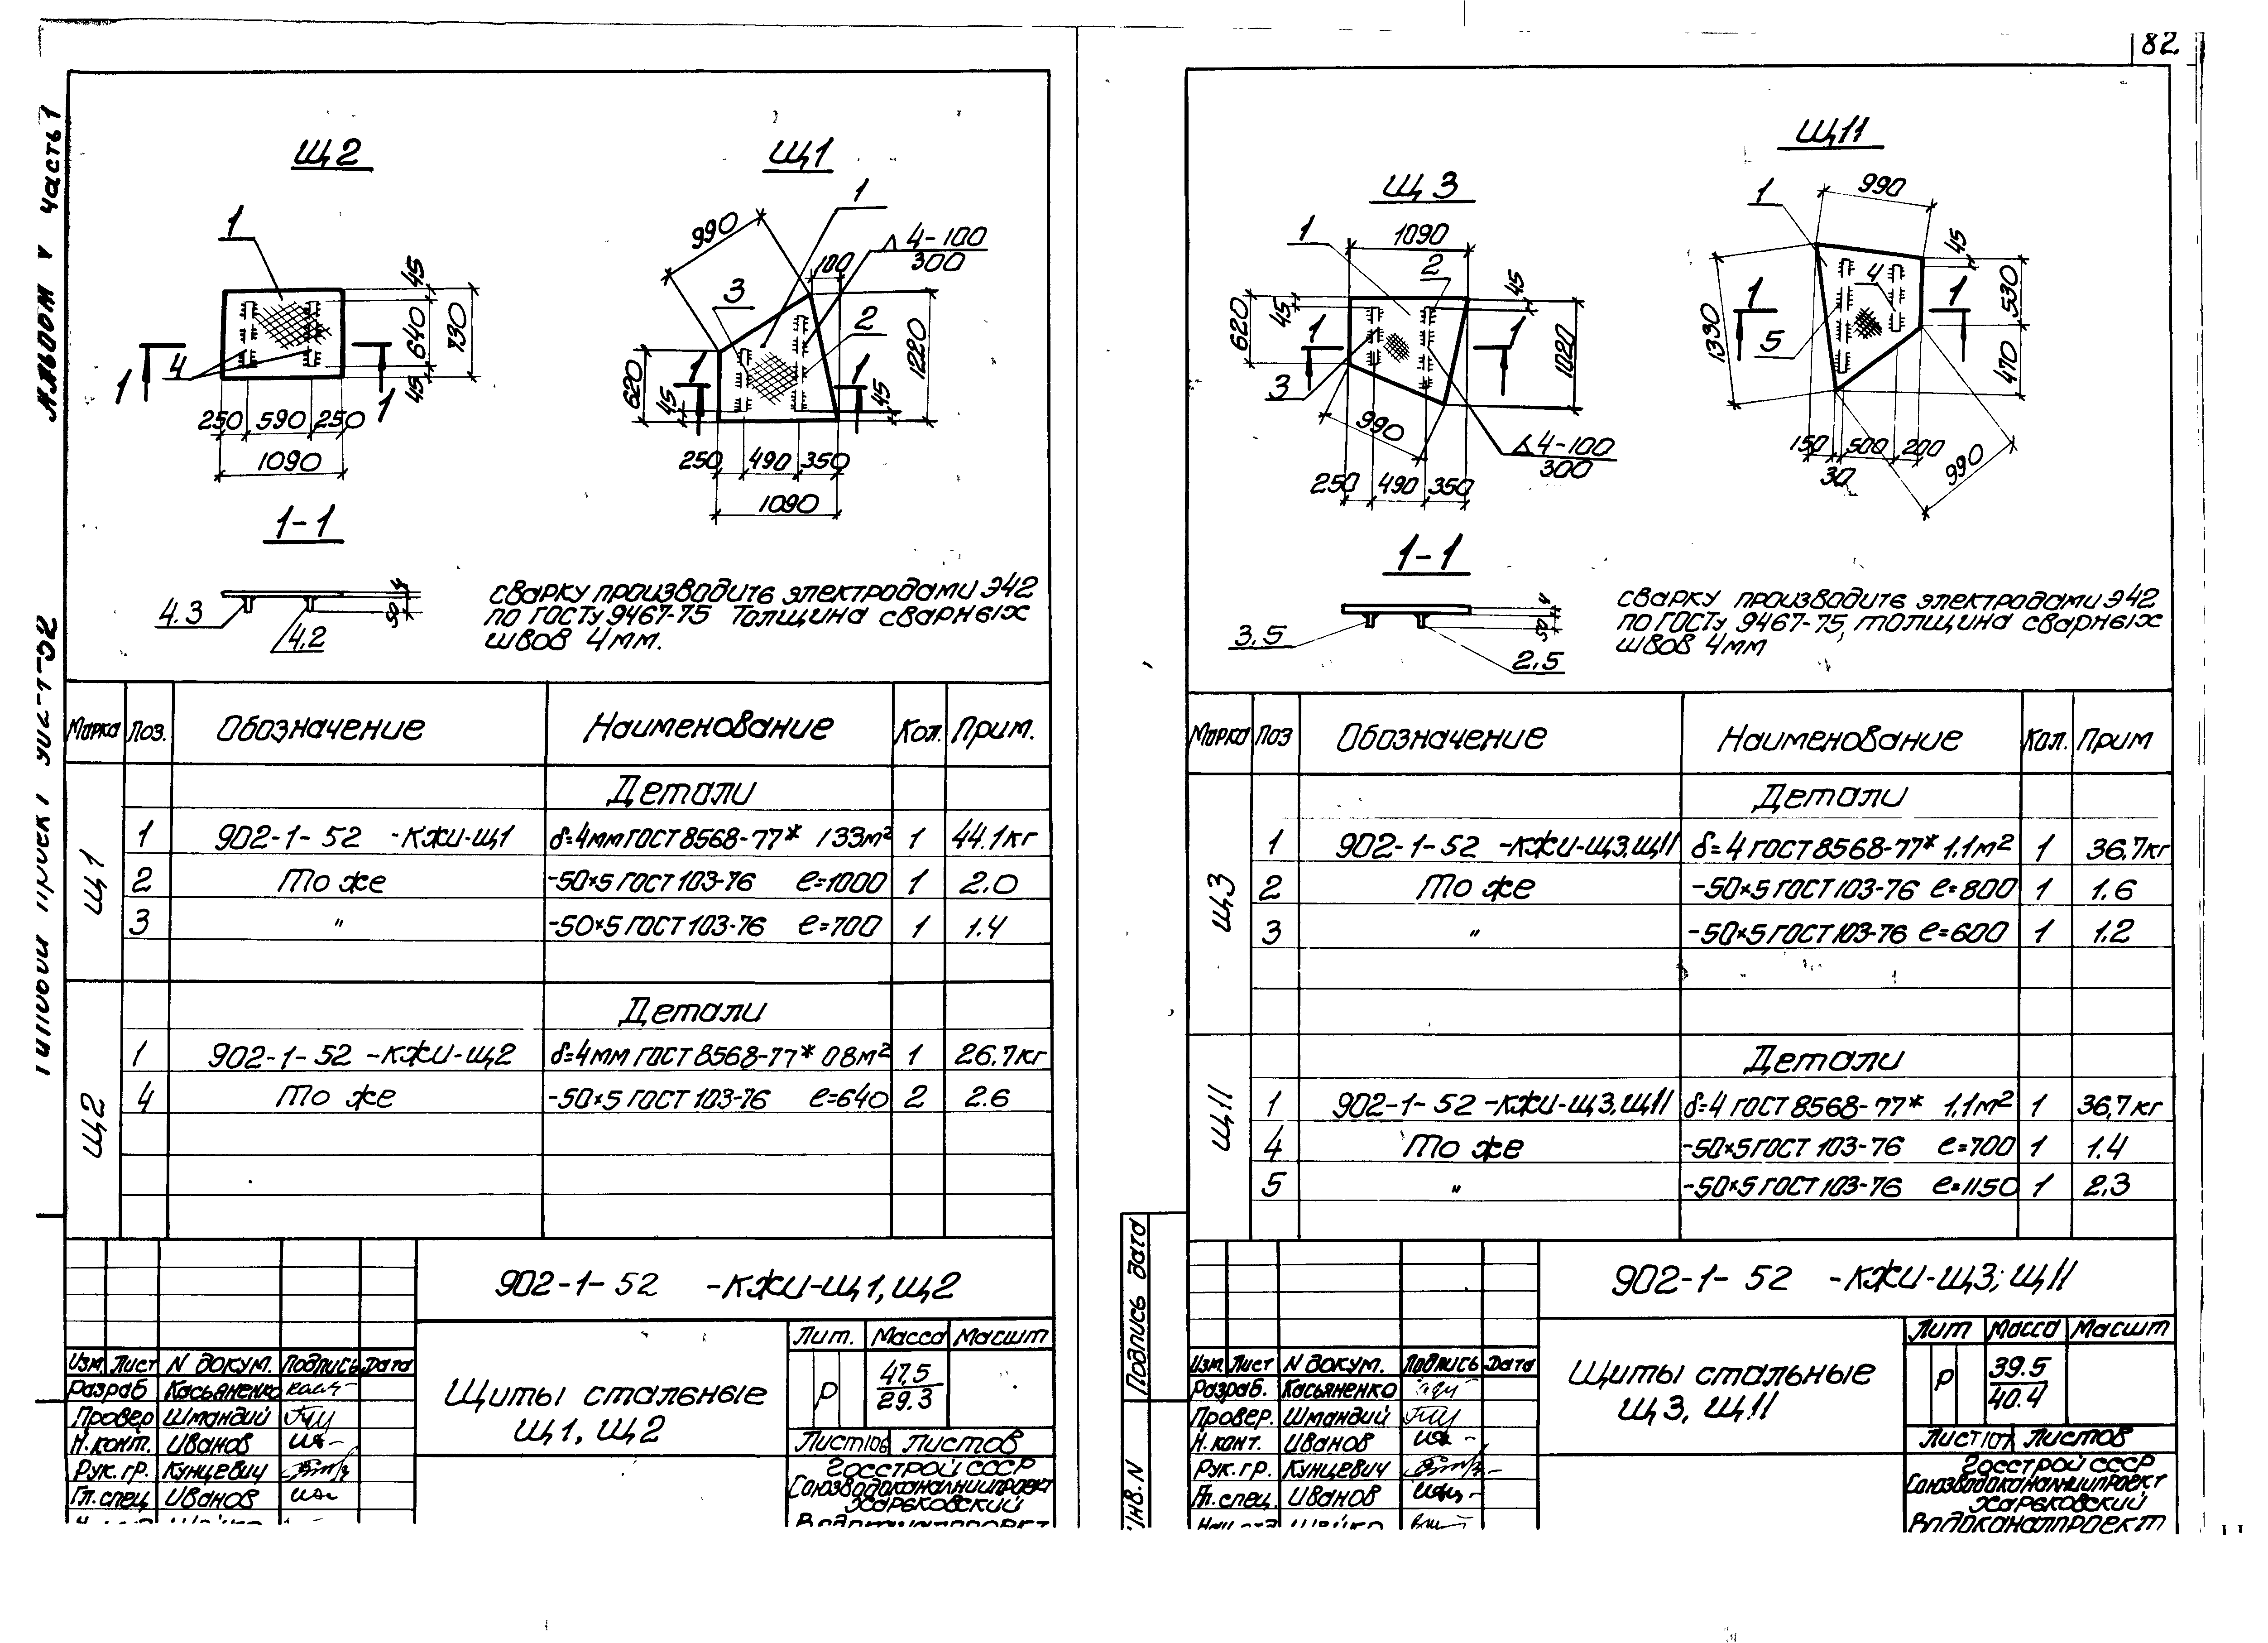 82
Альбом V часть 1
Типовой проект 902-1-52
Щ2
1
45
640
730
45
4
1
1
250 590 250
1090
Щ1
1
990
4-100
300
100
3
2
620
1
1
45
45
1220
250 490 350
1090
1-1
4.3
4.2
4
50
Сварку производить электродами Э42
по ГОСТу 9467-75 Толщина сварных
швов 4мм.
Марка Поз. Обозначение Наименование Кол. Прим.
Щ1
Детали
1 902-1-52 -КЖИ-Щ1 δ=4мм ГОСТ 8568-77* 133м² 1 44.1кг
2 То же -50×5 ГОСТ 103-76 ℓ=1000 1 2.0
3 " -50×5 ГОСТ 103-76 ℓ=700 1 1.4
Щ2
Детали
1 902-1-52 -КЖИ-Щ2 δ=4мм ГОСТ 8568-77* 08м² 1 26.7кг
4 То же -50×5 ГОСТ 103-76 ℓ=640 2 2.6
902-1-52 -КЖИ-Щ1, Щ2
Изм Лист N докум. Подпись Дата
Разраб Касьяненко
Провер Шмандий
Н.конт. Иванов
Рук.гр. Кунцевич
Гл.спец Иванов
Щиты стальные
Щ1, Щ2
Лит. Масса Масшт
Р 47.5
29.3
Лист 106 Листов
Госстрой СССР
Союзводоканалниипроект
Харьковский
Водоканалпроект
Щ3
1
1090
2
45
620
45
1
1
1020
3
990
4-100
300
250 490 350
Щ11
1
990
45
4
1
1
530
1330
5
470
150 500 200
30
990
1-1
3.5
2.5
4
50
Сварку производить электродами Э42
по ГОСТу 9467-75, толщина сварных
швов 4мм
Марка Поз Обозначение Наименование Кол. Прим
Щ3
Детали
1 902-1-52 -КЖИ-Щ3,Щ11 δ=4 ГОСТ 8568-77* 1.1м² 1 36.7кг
2 То же -50×5 ГОСТ 103-76 ℓ=800 1 1.6
3 " -50×5 ГОСТ 103-76 ℓ=600 1 1.2
Щ11
Детали
1 902-1-52 -КЖИ-Щ3,Щ11 δ=4 ГОСТ 8568-77* 1.1м² 1 36,7кг
4 То же -50×5 ГОСТ 103-76 ℓ=700 1 1.4
5 " -50×5 ГОСТ 103-76 ℓ=1150 1 2.3
Подпись дата
Инв.N
902-1-52 -КЖИ-Щ3; Щ11
Изм Лист N докум. Подпись Дата
Разраб. Касьяненко
Провер. Шмандий
Н.конт. Иванов
Рук.гр. Кунцевич
Гл.спец. Иванов
Щиты стальные
Щ3, Щ11
Лит Масса Масшт
Р 39.5
40.4
Лист 107 Листов
Госстрой СССР
Союзводоканалниипроект
Харьковский
Водоканалпроект